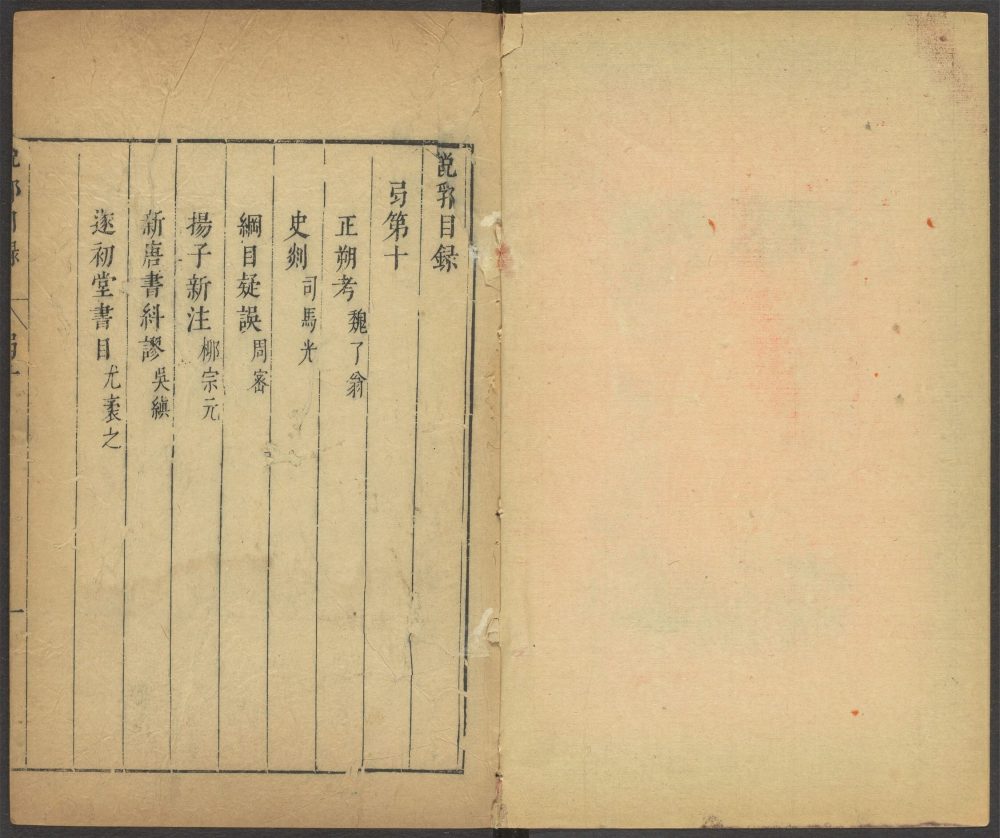 説郛目録
弓第十
正朔考 魏了翁
史剡 司馬光
綱目疑誤 周密
揚子新注 柳宗元
新唐書糾謬 吳縝
遂初堂書目 尤袤之